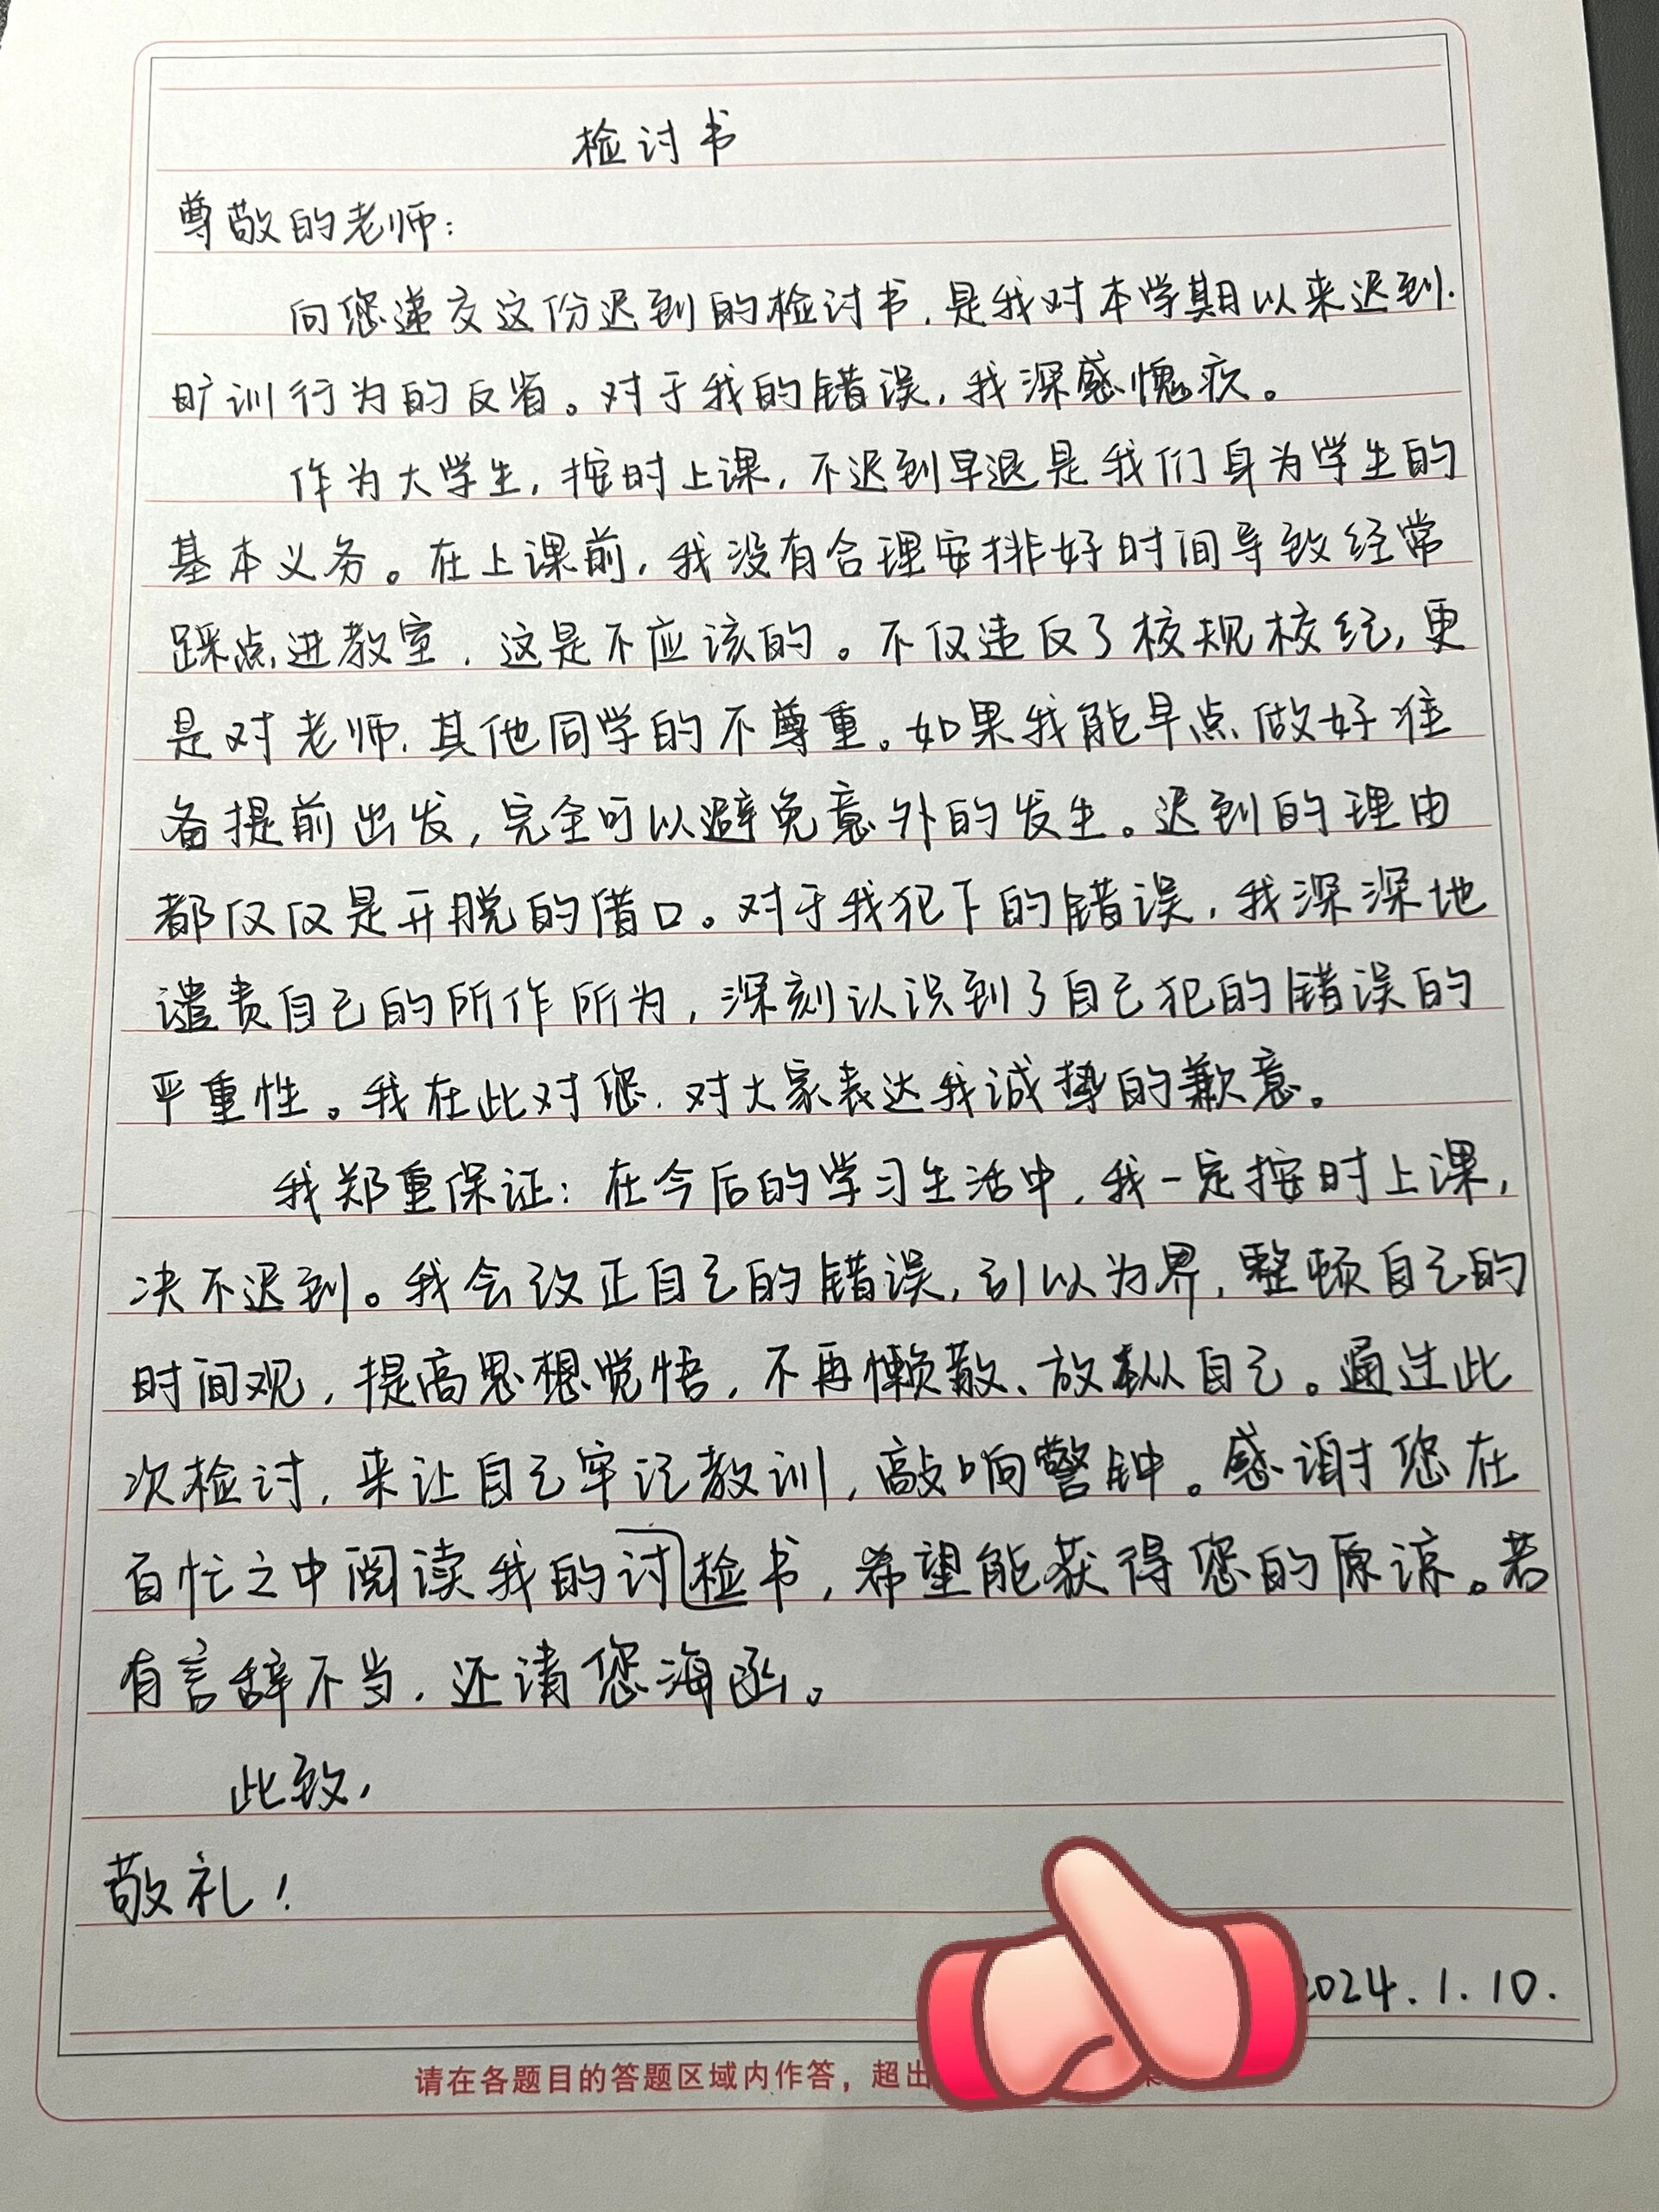 检讨书
尊敬的老师：
向您递交这份迟到的检讨书，是我对本学期以来迟到、
旷训行为的反省。对于我的错误，我深感愧疚。
作为大学生，按时上课，不迟到早退是我们身为学生的
基本义务。在上课前，我没有合理安排好时间导致经常
踩点进教室，这是不应该的。不仅违反了校规校纪，更
是对老师、其他同学的不尊重。如果我能早点做好准
备提前出发，完全可以避免意外的发生。迟到的理由
都仅仅是开脱的借口。对于我犯下的错误，我深深地
谴责自己的所作所为，深刻认识到了自己犯的错误的
严重性。我在此对您、对大家表达我诚挚的歉意。
我郑重保证：在今后的学习生活中，我一定按时上课，
决不迟到。我会改正自己的错误，引以为界，整顿自己的
时间观，提高思想觉悟，不再懒散、放纵自己。通过此
次检讨，来让自己牢记教训，敲响警钟。感谢您在
百忙之中阅读我的讨检书，希望能获得您的原谅。若
有言辞不当，还请您海函。
此致，
敬礼！
2024.1.10.
请在各题目的答题区域内作答，超出